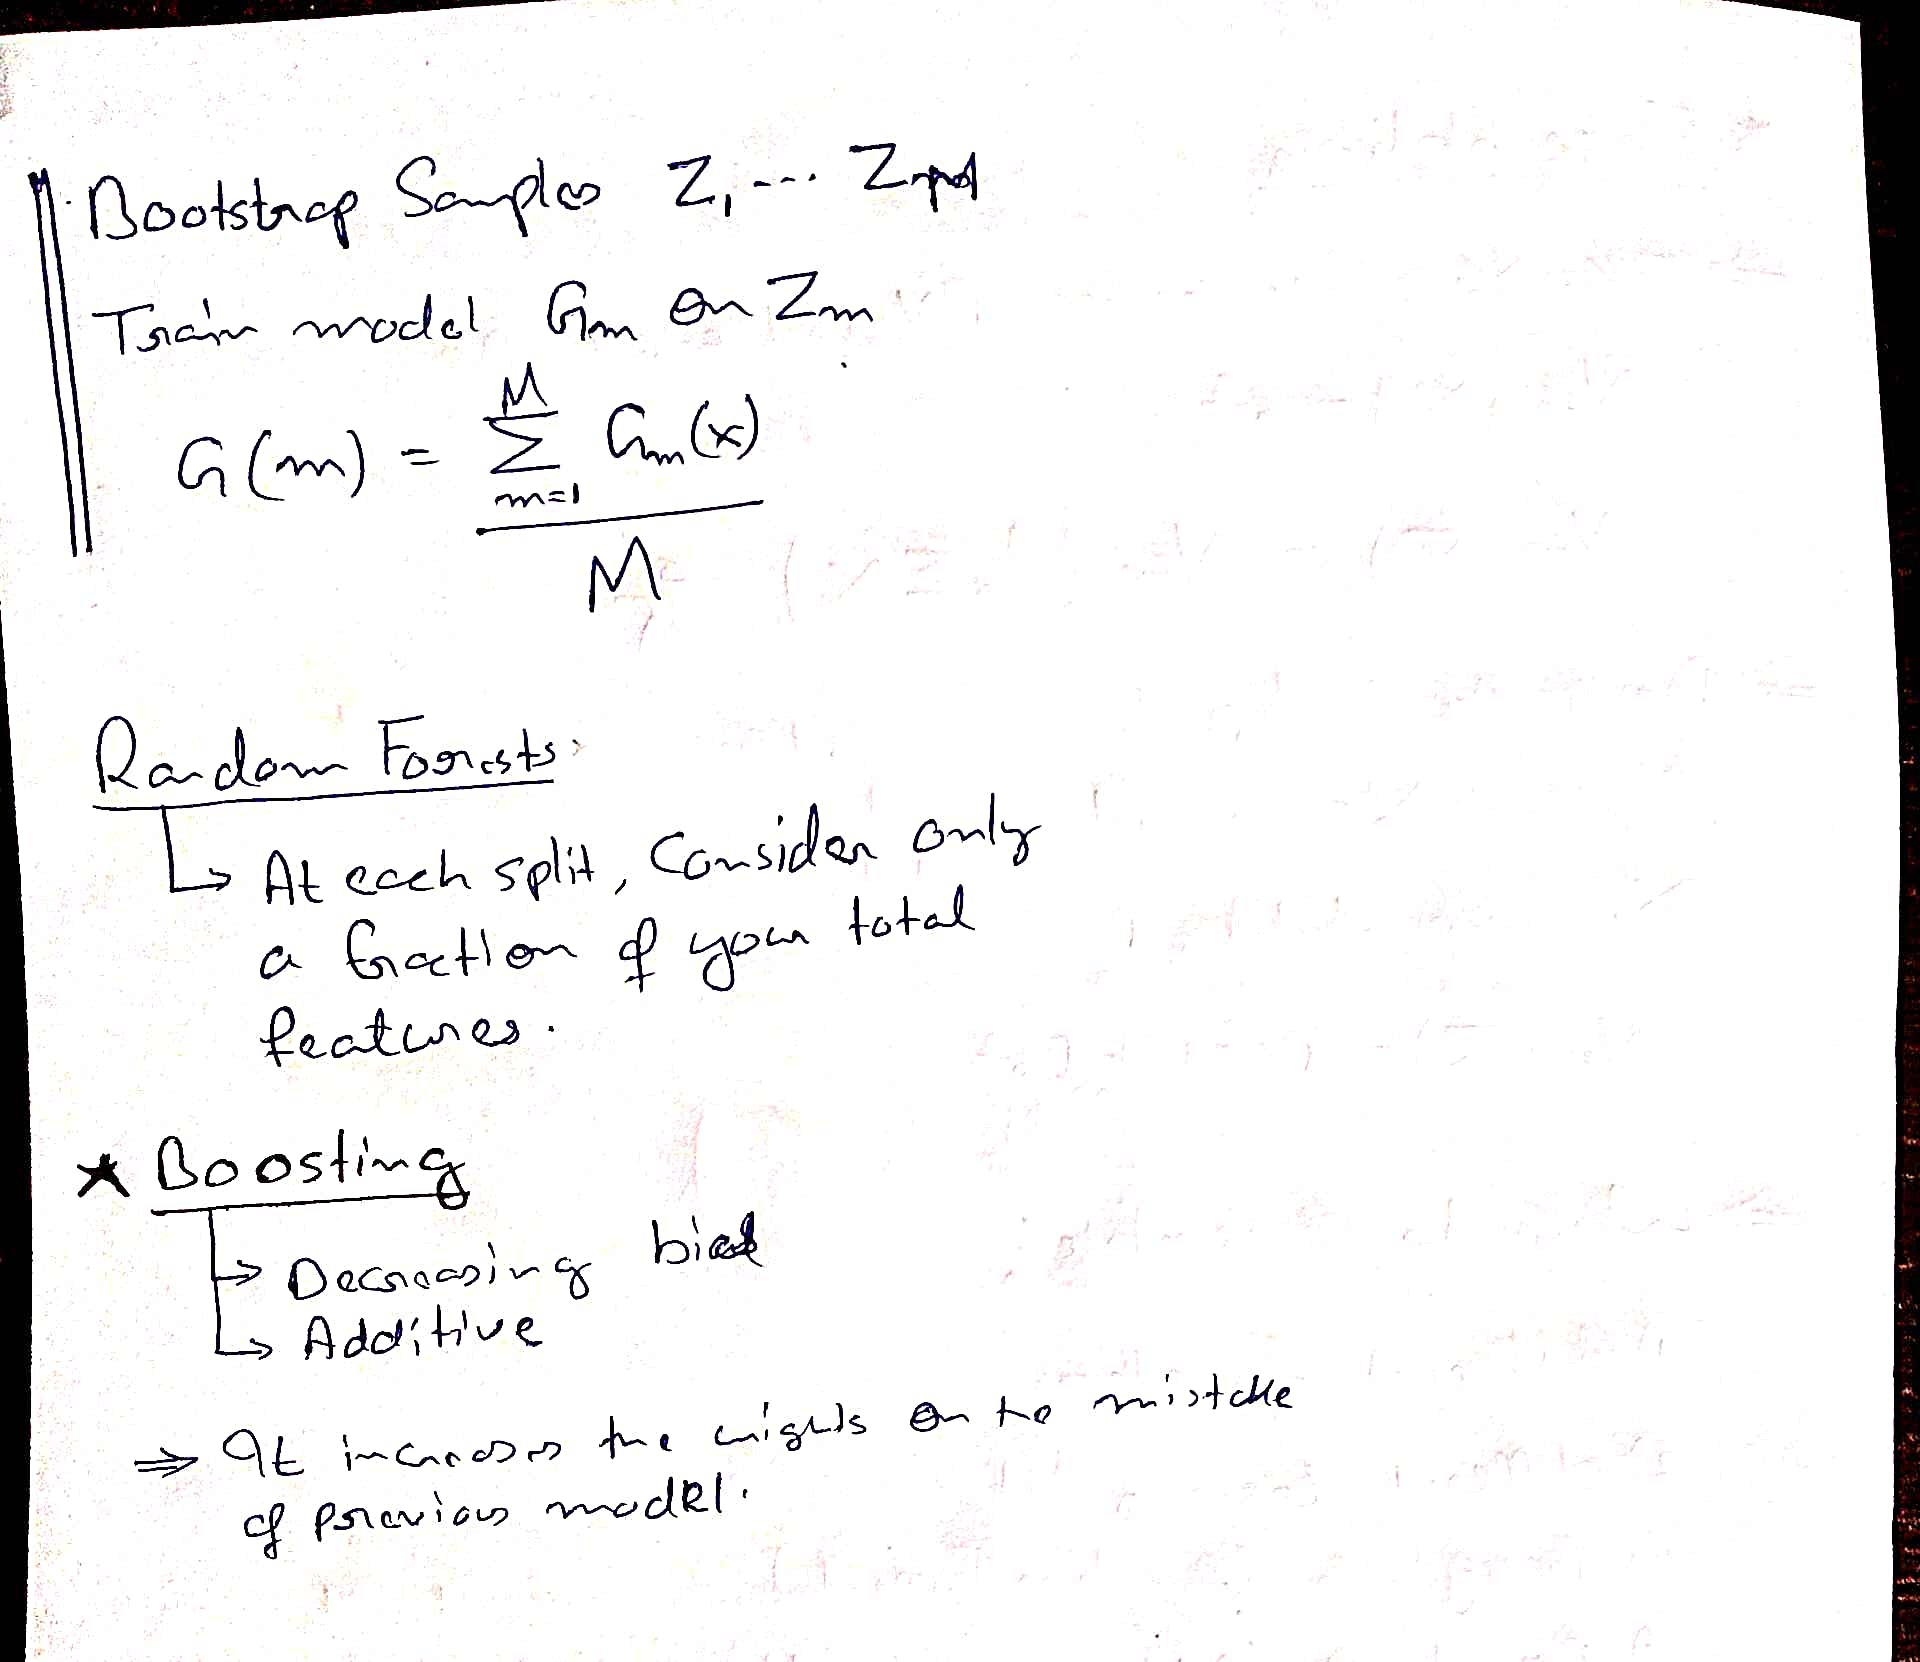 Bootstrap Samples Z1, ... ZM
Train model Gm on Zm
G(m) = M ∑ m=1 Gm(x) / M
Random Forests:
↳ At each split, Consider only
a fraction of your total
features.
★ Boosting
↳ Decreasing bias
↳ Additive
⇒ It increases the weights on the mistake
of previous model.